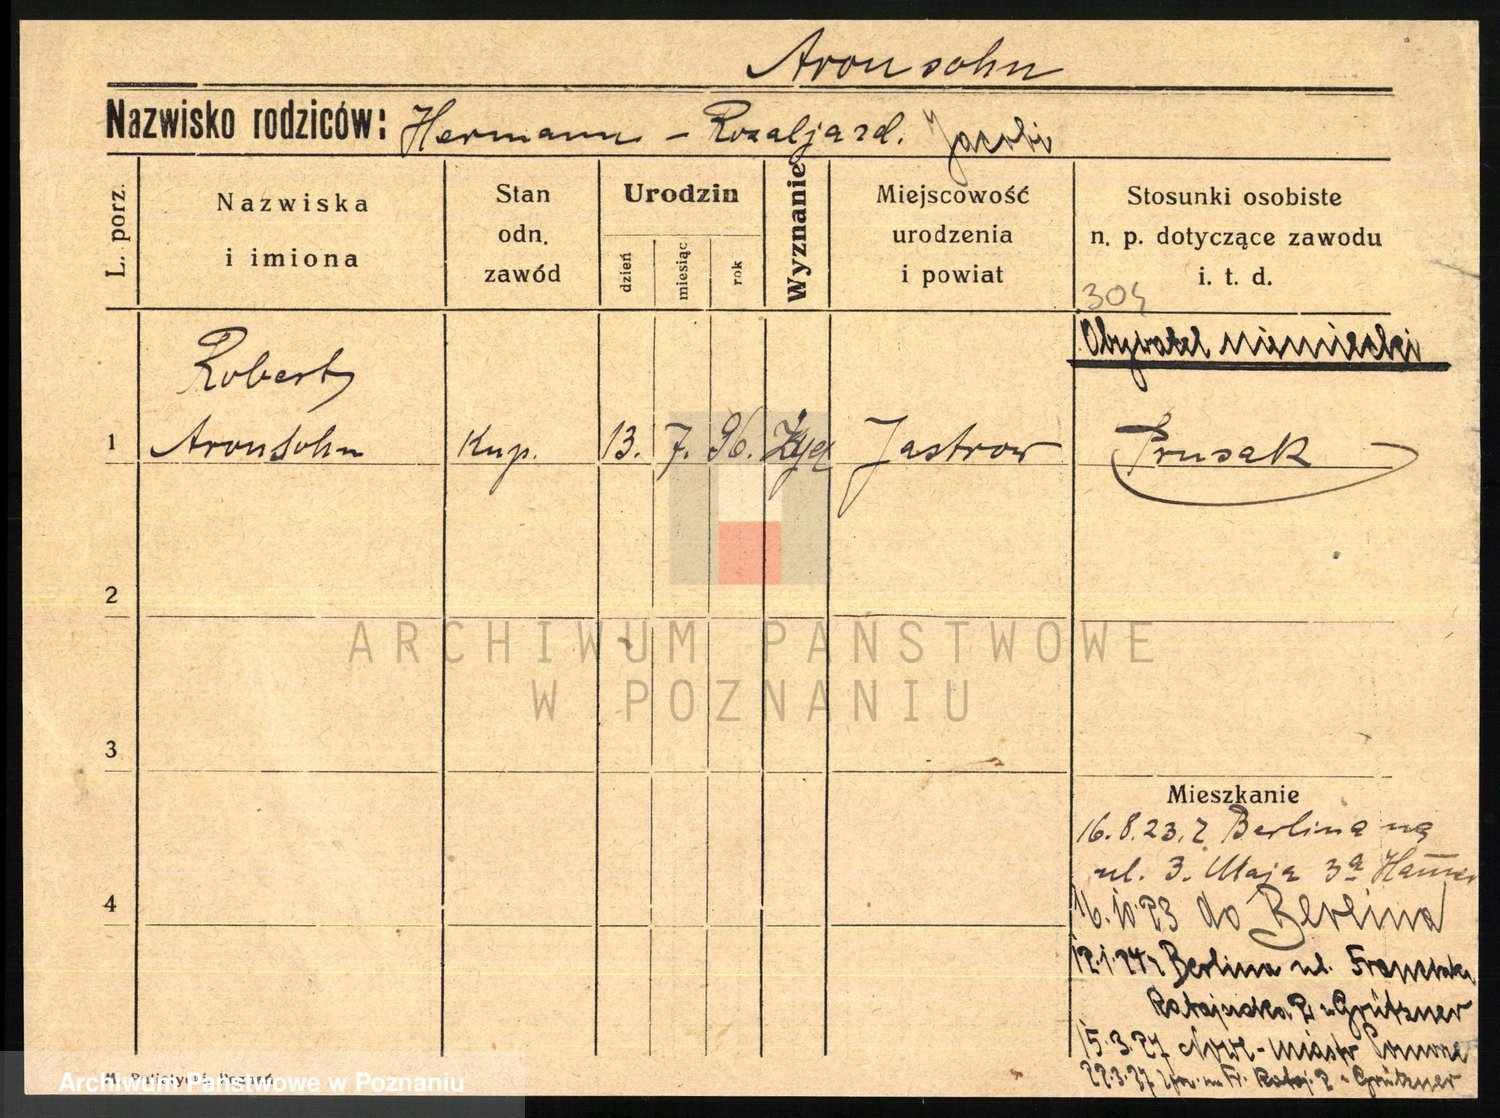 Aronsohn
Nazwisko rodziców: Hermann - Rozalja zd. Jacobi
L. porz.
Nazwiska
i imiona
Stan
odn.
zawód
Urodzin
dzień
miesiąc
rok
Wyznanie
Miejscowość
urodzenia
i powiat
Stosunki osobiste
n. p. dotyczące zawodu
i. t. d.
304
Obywatel niemiecki
Robert
1 Aronsohn Kup. 13. 7. 96. Jastrow Prusak
2
ARCHIWUM PAŃSTWOWE
W POZNANIU
3
Mieszkanie
16.8.23. z Berlina na
ul. 3. Maja 3a
4
16.10.23 do Berlina
12.1.24 z Berlina ul.
Ratajczaka 2 u Grützner
15.3.27 Nowe-miasto
22.3.27 Rataj. 2 u Grützner
Archiwum Państwowe w Poznaniu